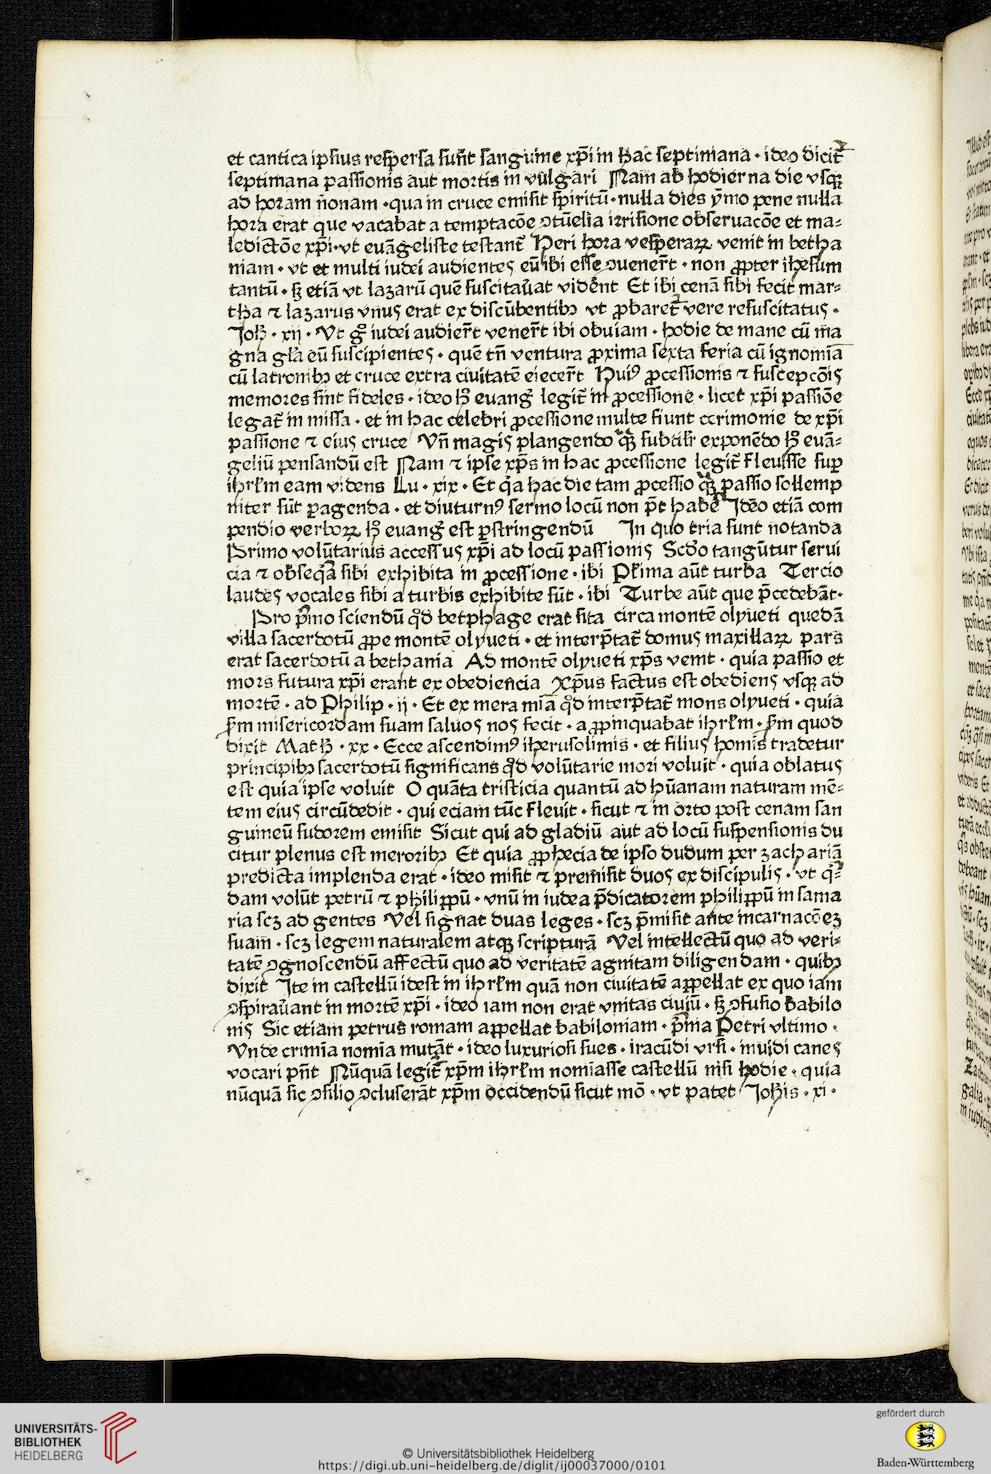 et cantica ipsius respersa sunt̄ sanguine xp̄i in hac septimana · ideo dicit̄
septimana passionis aut mortis in vulgari Nam ab hodierna die vsqꝫ
ad horam nonam · qua in cruce emisit spiritū · nulla dies ymo pene nulla
hora erat que vacabat a temptacōe ꝯtūelia irrisione obseruacōe et ma-
ledictōe xp̄i · vt euāgeliste testant̄ Heri hora vesperaꝝ venit in betha
niam · vt et multi iudei audientes eū ibi esse ꝯuenert̄ · non ꝓpter ihesum
tantū · sꝫ etiā vt lazarū quē suscitauat vident̄ Et ibi cenā sibi fecit mar-
tha ⁊ lazarus vnus erat ex discūbentibꝫ vt ꝓbaret̄ vere resuscitatus ·
Joh̄ · xij · Vt gͦ iudei audiert̄ venert̄ ibi obuiam · hodie de mane cū ma
gna gl̄a eū suscipientes · quē tn̄ ventura ꝓxima sexta feria cū ignomīa
cū latronibꝫ et cruce extra ciuitatē eiecert̄ Huiꝰ ꝓcessionis ⁊ suscepcōis
memores sint fideles · ideo h̄ euanḡ legit̄ in ꝓcessione · licet xp̄i passiōe
legat̄ in missa · et in hac celebri ꝓcessione multe fiunt cerimonie de xp̄i
passione ⁊ eius cruce Vn̄ magis plangendo qͣꝫ subtilit̄ exponēdo h̄ euā-
geliū pensandū est Nam ⁊ ipse xp̄s in hac ꝓcessione legit̄ fleuisse suꝑ
ihrl̄m eam videns Lu · xix · Et qͣa hac die tam ꝓcessio qͣꝫ passio sollemp
niter sūt ꝑagenda · et diuturnꝰ sermo locū non pt̄ habē Idēo etiā com
pendio verboꝝ h̄ euanḡ est ꝑstringendū In quo tria sunt notanda
Primo volūtarius accessus xp̄i ad locū passionis Scd̄o tangūtur serui
cia ⁊ obseqͣa sibi exhibita in ꝓcessione · ibi Pl̄ima aūt turba Tercio
laudes vocales sibi a turbis exhibite sūt · ibi Turbe aūt que p̄cedebāt ·
Pro pͥmo sciendū qd̄ betphage erat sita circa montē olyueti quedā
villa sacerdotū ꝓpe montē olyueti · et interp̄tat̄ domus maxillaꝝ pars
erat sacerdotū a bethania Ad montē olyueti xp̄s venit · quia passio et
mors futura xp̄i erant ex obediencia Xp̄us factus est obediens vsqꝫ ad
mortē · ad Philip · ij · Et ex mera mīa qd̄ interp̄tat̄ mons olyueti · quia
sm̄ misericordam suam saluos nos fecit · aꝓpinquabat ihrl̄m · sm̄ quod
dixit Math̄ · xx · Ecce ascendimꝰ iherusolimis · et filius homīs tradetur
principibꝫ sacerdotū significans qd̄ volūtarie mori voluit · quia oblatus
est quia ipse voluit O quāta tristicia quantū ad hūanam naturam mē-
tem eius circūdedit · qui eciam tūc fleuit · sicut ⁊ in orto post cenam san
guineū sudorem emisit Sicut qui ad gladiū aut ad locū suspensionis du
citur plenus est meroribꝫ Et quia ꝓphecia de ipso dudum per zachariā
predicta implenda erat · ideo misit ⁊ premisit duos ex discipulis · vt qͥ-
dam volūt petrū ⁊ philippū · vnū in iudea p̄dicatorem philippū in sama
ria scꝫ ad gentes Vel signat duas leges · scꝫ p̄misit ante incarnacōeꝫ
suam · scꝫ legem naturalem atqꝫ scripturā Vel intellectū quo ad veri-
tatē ꝯgnoscendū affectū quo ad veritatē agnitam diligendam · quibꝫ
dixit Ite in castellū idest in ihrl̄m quā non ciuitatē appellat ex quo iam
ꝯspirauant in mortē xp̄i · ideo iam non erat vnitas ciuiū · sꝫ ꝯfusio babilo
nis Sic etiam petrus romam appellat babiloniam · pͥma Petri vltimo ·
Vnde crimīa nomīa mutāt · ideo luxuriosi sues · iracūdi vrsi · inuidi canes
vocari pn̄t Nūquā legit̄ xp̄m ihrl̄m nomīasse castellū nisi hodie · quia
nūquā sic ꝯsilio ꝯcluserāt xp̄m occidendū sicut mō · vt patet Joh̄is · xi ·
UNIVERSITÄTS-
BIBLIOTHEK
HEIDELBERG
© Universitätsbibliothek Heidelberg
https://digi.ub.uni-heidelberg.de/diglit/ij00037000/0101
gefördert durch
Baden-Württemberg